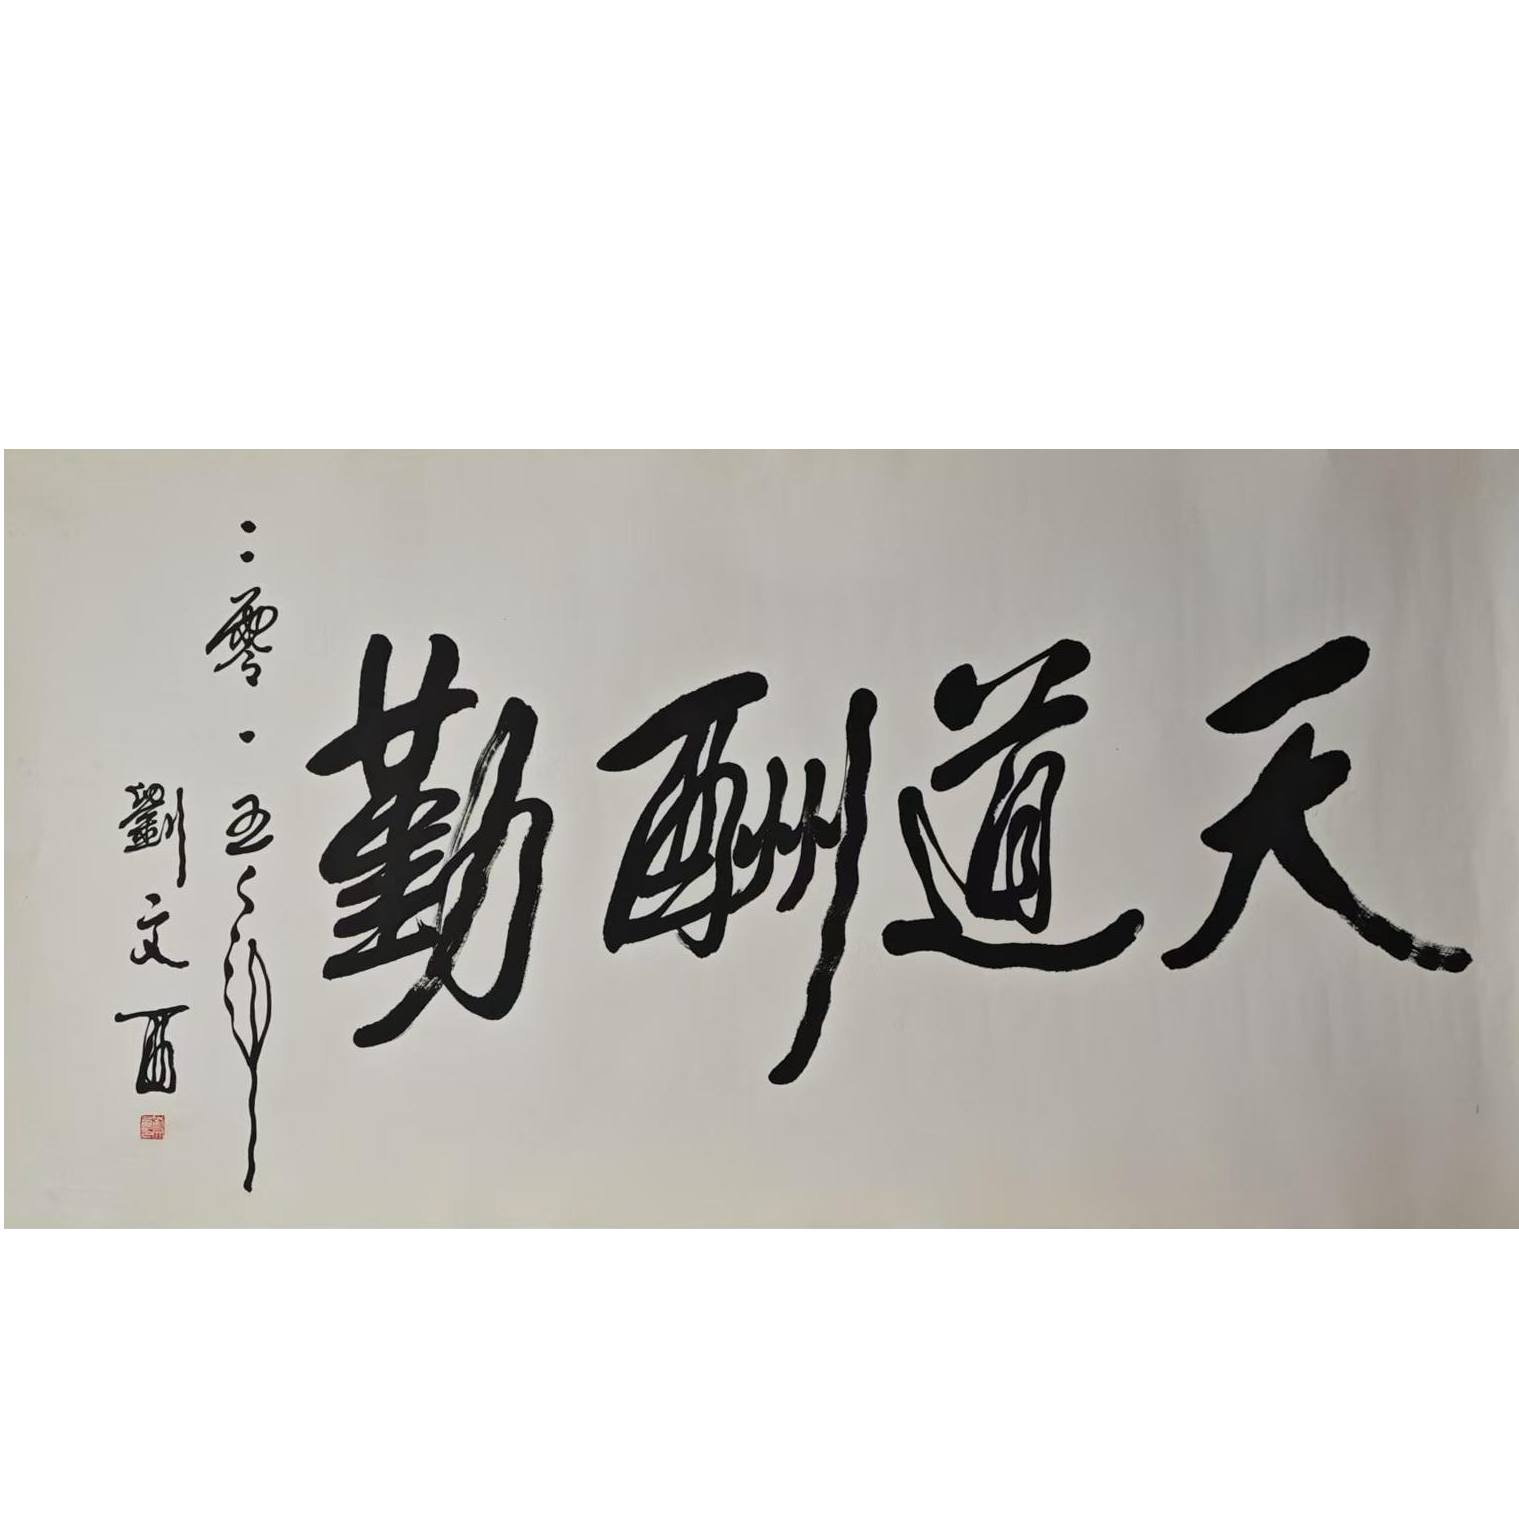 天道酬勤
二零一五年
劉文西